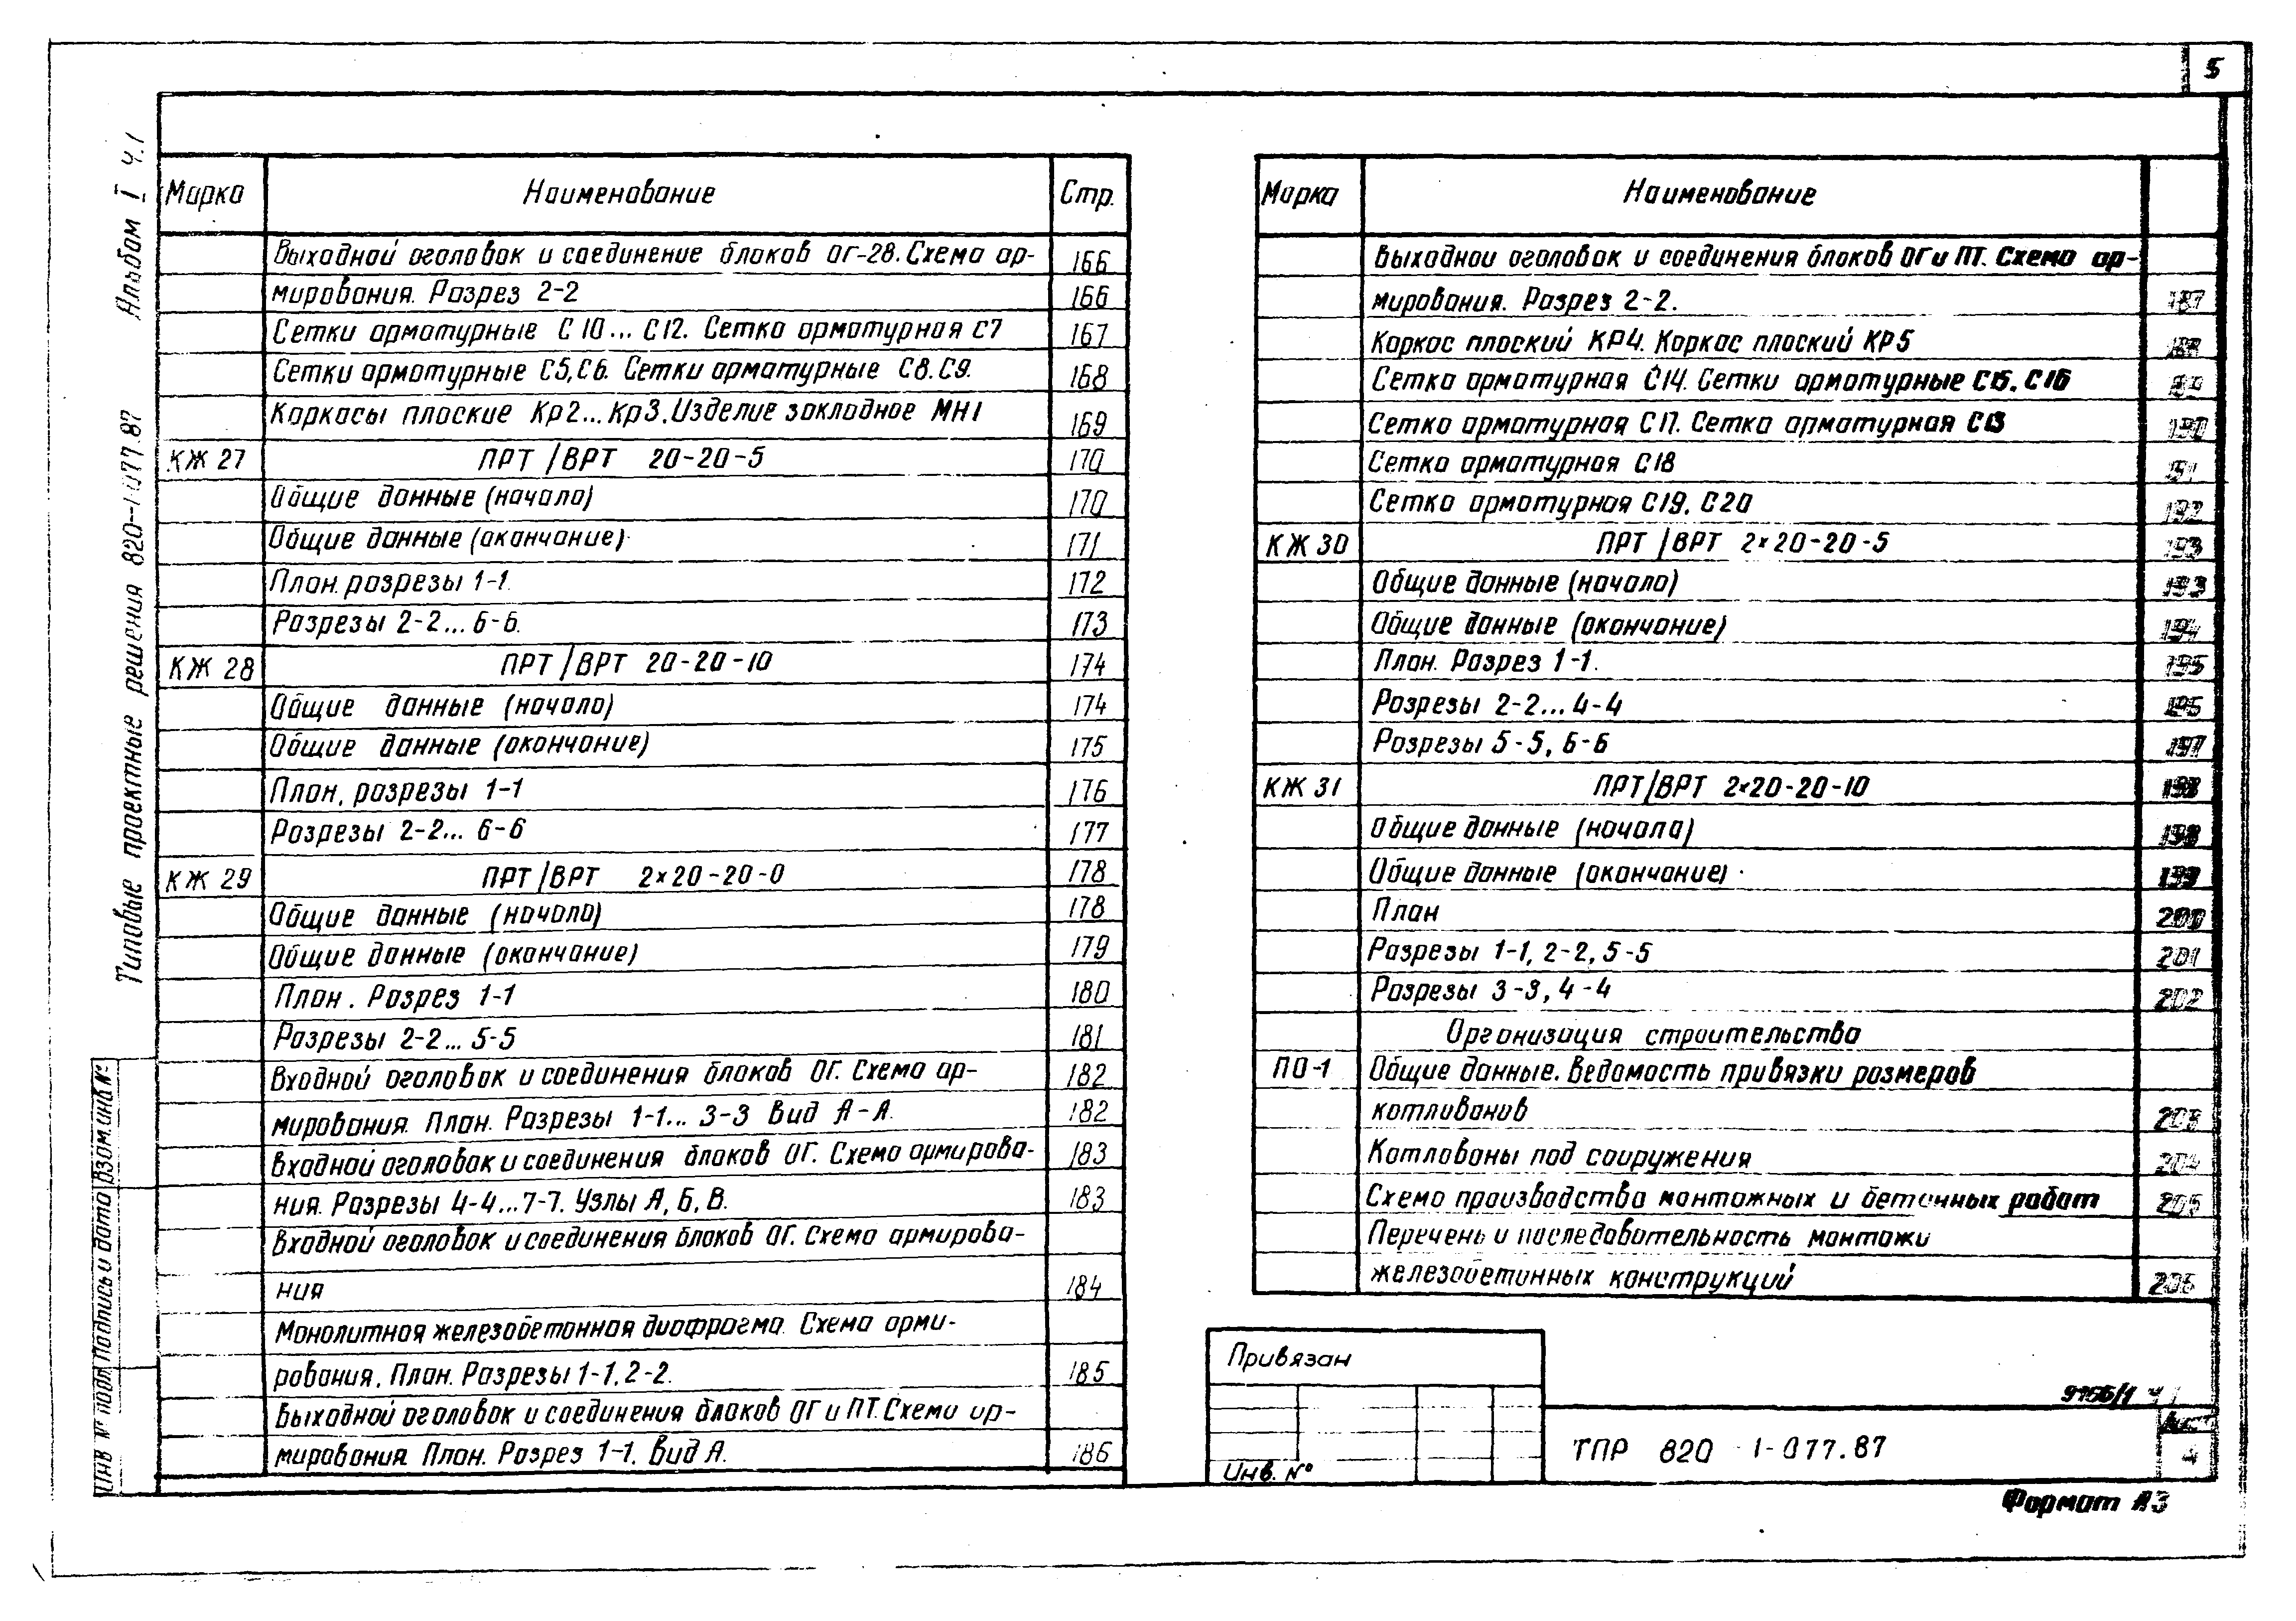 5
Альбом I ч.1
Типовые проектные решения 820-1-077.87
Взам.инв.№
Подпись и дата
Инв № подл
Марка Наименование Стр.
Выходной оголовок и соединение блоков ОГ-28. Схема ар- 166
мирования. Разрез 2-2 166
Сетки арматурные С10... С12. Сетка арматурная С7 167
Сетки арматурные С5,С6. Сетки арматурные С8.С9. 168
Каркасы плоские Кр2... Кр3. Изделие закладное МН1 169
КЖ 27 ПРТ/ВРТ 20-20-5 170
Общие данные (начало) 170
Общие данные (окончание) 171
План. разрезы 1-1. 172
Разрезы 2-2... 6-6. 173
КЖ 28 ПРТ/ВРТ 20-20-10 174
Общие данные (начало) 174
Общие данные (окончание) 175
План, разрезы 1-1 176
Разрезы 2-2... 6-6 177
КЖ 29 ПРТ/ВРТ 2×20-20-0 178
Общие данные (начало) 178
Общие данные (окончание) 179
План. Разрез 1-1 180
Разрезы 2-2... 5-5 181
Входной оголовок и соединения блоков ОГ. Схема ар- 182
мирования. План. Разрезы 1-1... 3-3 Вид А-А. 182
Входной оголовок и соединения блоков ОГ. Схема армирова- 183
ния. Разрезы 4-4...7-7. Узлы А, Б, В. 183
Входной оголовок и соединения блоков ОГ. Схема армирова-
ния 184
Монолитная железобетонная диафрагма. Схема арми-
рования. План. Разрезы 1-1, 2-2. 185
Выходной оголовок и соединения блоков ОГ и ПТ. Схема ар-
мирования. План. Разрез 1-1. Вид А. 186
Марка Наименование
Выходной оголовок и соединения блоков ОГ и ПТ. Схема ар-
мирования. Разрез 2-2. 187
Каркас плоский КР4. Каркас плоский КР5 188
Сетка арматурная С14. Сетки арматурные С15, С16
Сетка арматурная С17. Сетка арматурная С13 190
Сетка арматурная С18 191
Сетка арматурная С19, С20 192
КЖ 30 ПРТ/ВРТ 2×20-20-5 193
Общие данные (начало) 193
Общие данные (окончание) 194
План. Разрез 1-1. 195
Разрезы 2-2... 4-4
Разрезы 5-5, 6-6 197
КЖ 31 ПРТ/ВРТ 2×20-20-10 198
Общие данные (начала) 198
Общие данные (окончание) 199
План 200
Разрезы 1-1, 2-2, 5-5 201
Разрезы 3-3, 4-4 202
Организация строительства
ПО-1 Общие данные. Ведомость привязки размеров
котлованов 203
Котлованы под сооружения 204
Схема производства монтажных и бетонных работ 205
Перечень и последовательность монтажи
железобетонных конструкций
Привязан
Инв. №
ТПР 820-1-077.87
Лист
4
Формат А3